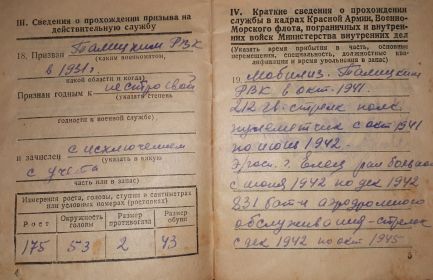 III. Сведения о прохождении призыва на
действительную службу
18. Призван Талицким РВК
(каким военкоматом,
в 1931 г.
какой области и когда)
Признан годным к нестроевой
(указать степень
годности к военной службе)
и зачислен с исключением
(указать в какую
с учета
часть или в запас)
Измерения роста, головы, ступни в сантиметрах
или условных номерах (ростовках)
Рост
Окружность
головы
Размер
противогаза
Размер
обуви
175 53 2 43
4
IV. Краткие сведения о прохождении
службы в кадрах Красной Армии, Военно-
Морского флота, пограничных и внутрен-
них войск Министерства внутренних дел
(Указать время прибытия в часть, основные
перемещения, специальность, должностные ква-
лификации и время увольнения в запас)
19. Мобилиз. Талицким
РВК в окт. 1941.
212 гв. стрелк полк
пулеметчик с окт 1941
по июнь 1942.
Э/госп. г. Елец
с июня 1942 по дек 1942
831 бат-н аэродромного
обслуживания - стрелок
с дек 1942 по окт 1945
5